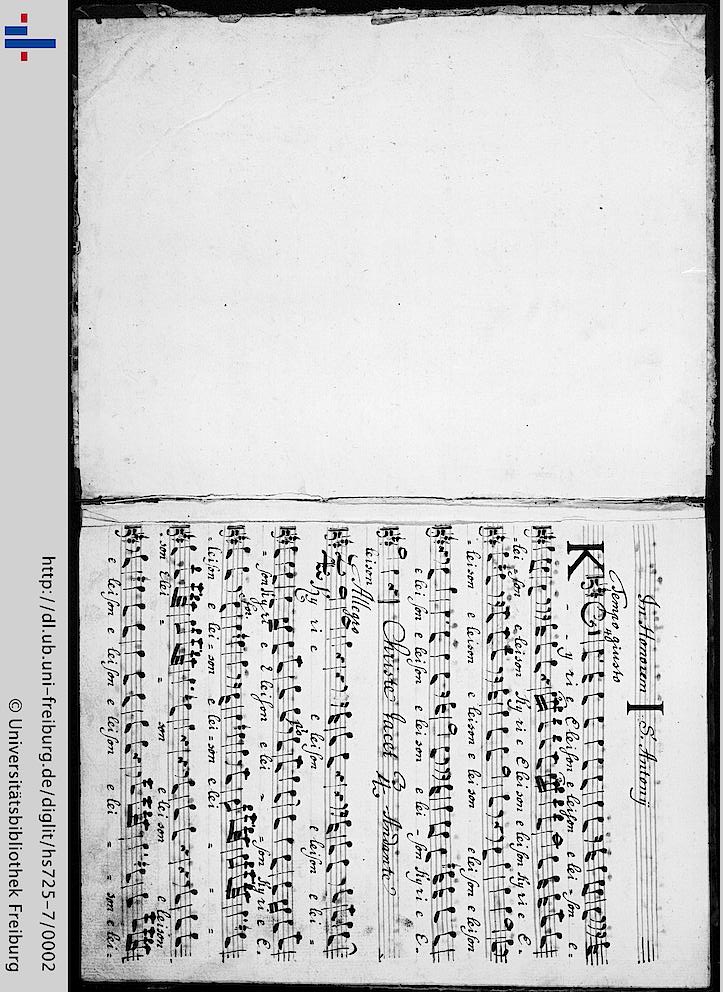 In Honorem I S. Antonij
Tempo giusto
K - - y ri e Eleison e leison e lei - son e =
= lei = son e leison Ky ri e Elei son e leison Ky ri e E =
= leison e leison e leison e lei son e leison e leison
e leison e leison e lei son e lei son Kyri e E =
leison Christe tacet Andante
Allegro
Ky ri e e leison e leison e lei =
= son Kyri e e leison e lei = = son Kyri e E =
= leison e lei = son e lei = son e lei = = =
= son Elei = = son e lei son e leison
e leison e leison e leison e lei = = son e lei =
http://dl.ub.uni-freiburg.de/diglit/hs725-7/0002
© Universitätsbibliothek Freiburg